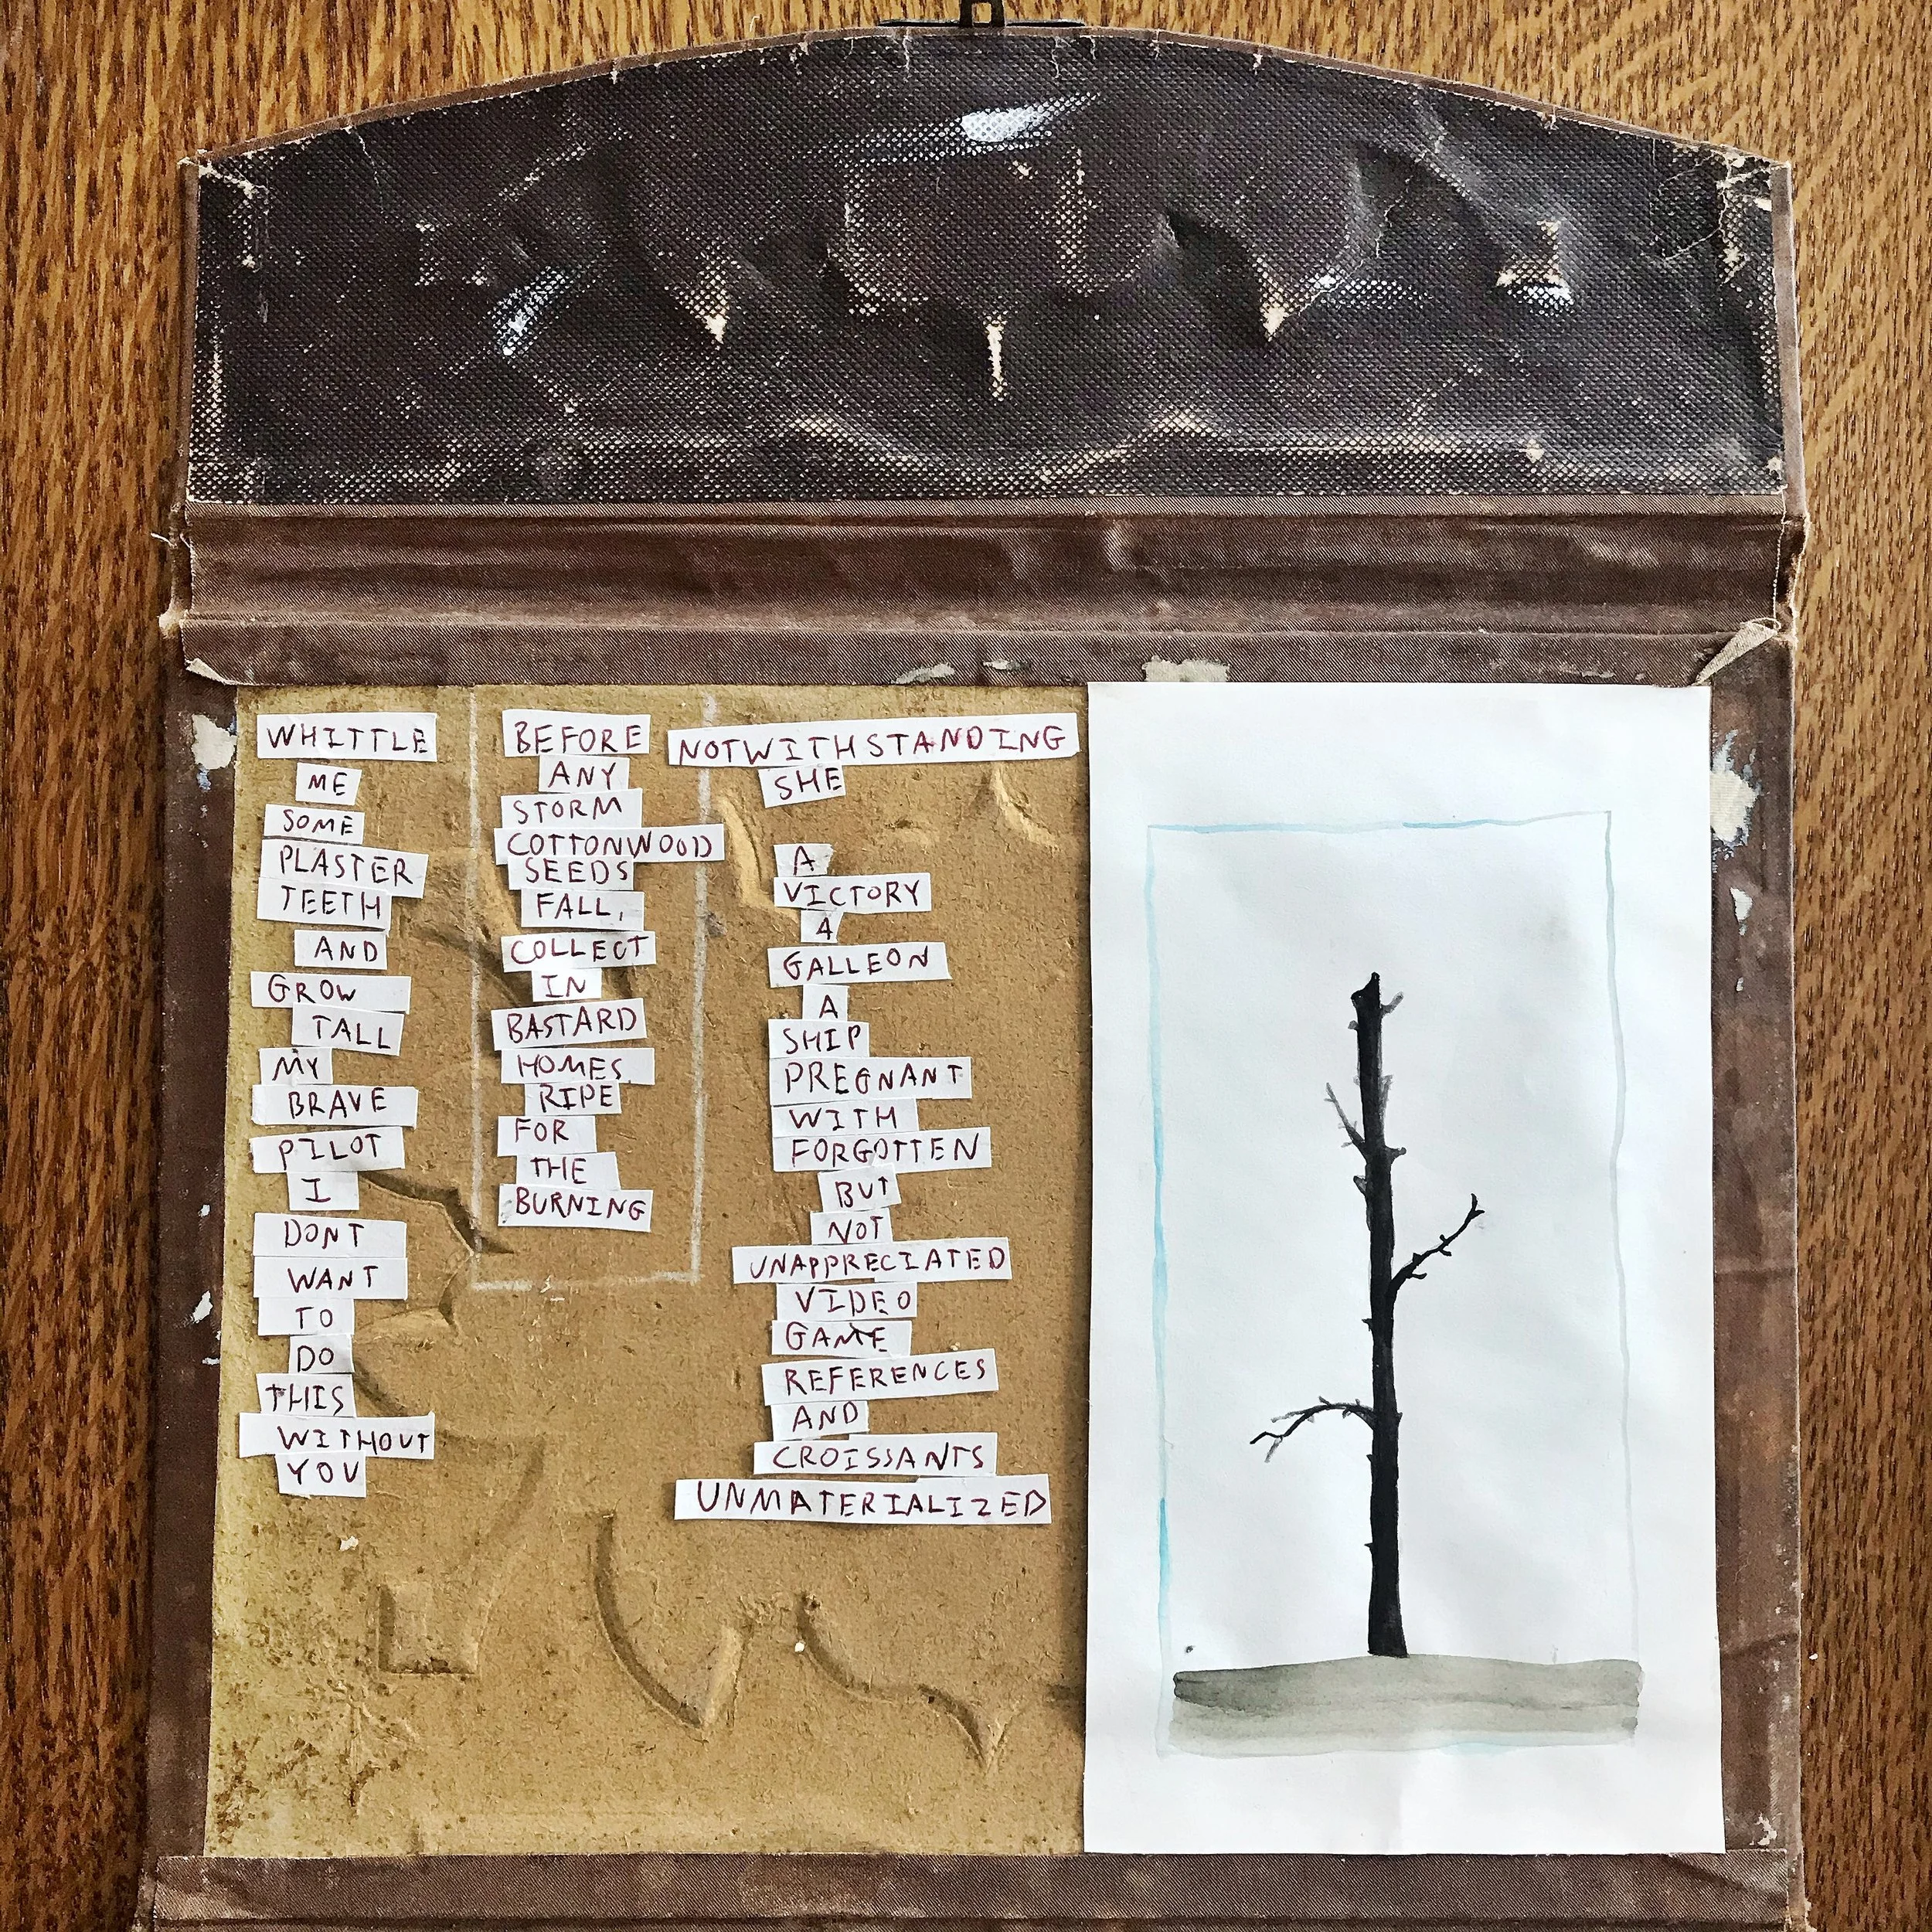 WHITTLE
ME
SOME
PLASTER
TEETH
AND
GROW
TALL
MY
BRAVE
PILOT
I
DONT
WANT
TO
DO
THIS
WITHOUT
YOU
BEFORE
ANY
STORM
COTTONWOOD
SEEDS
FALL,
COLLECT
IN
BASTARD
HOMES
RIPE
FOR
THE
BURNING
NOTWITHSTANDING
SHE
A
VICTORY
A
GALLEON
A
SHIP
PREGNANT
WITH
FORGOTTEN
BUT
NOT
UNAPPRECIATED
VIDEO
GAME
REFERENCES
AND
CROISSANTS
UNMATERIALIZED